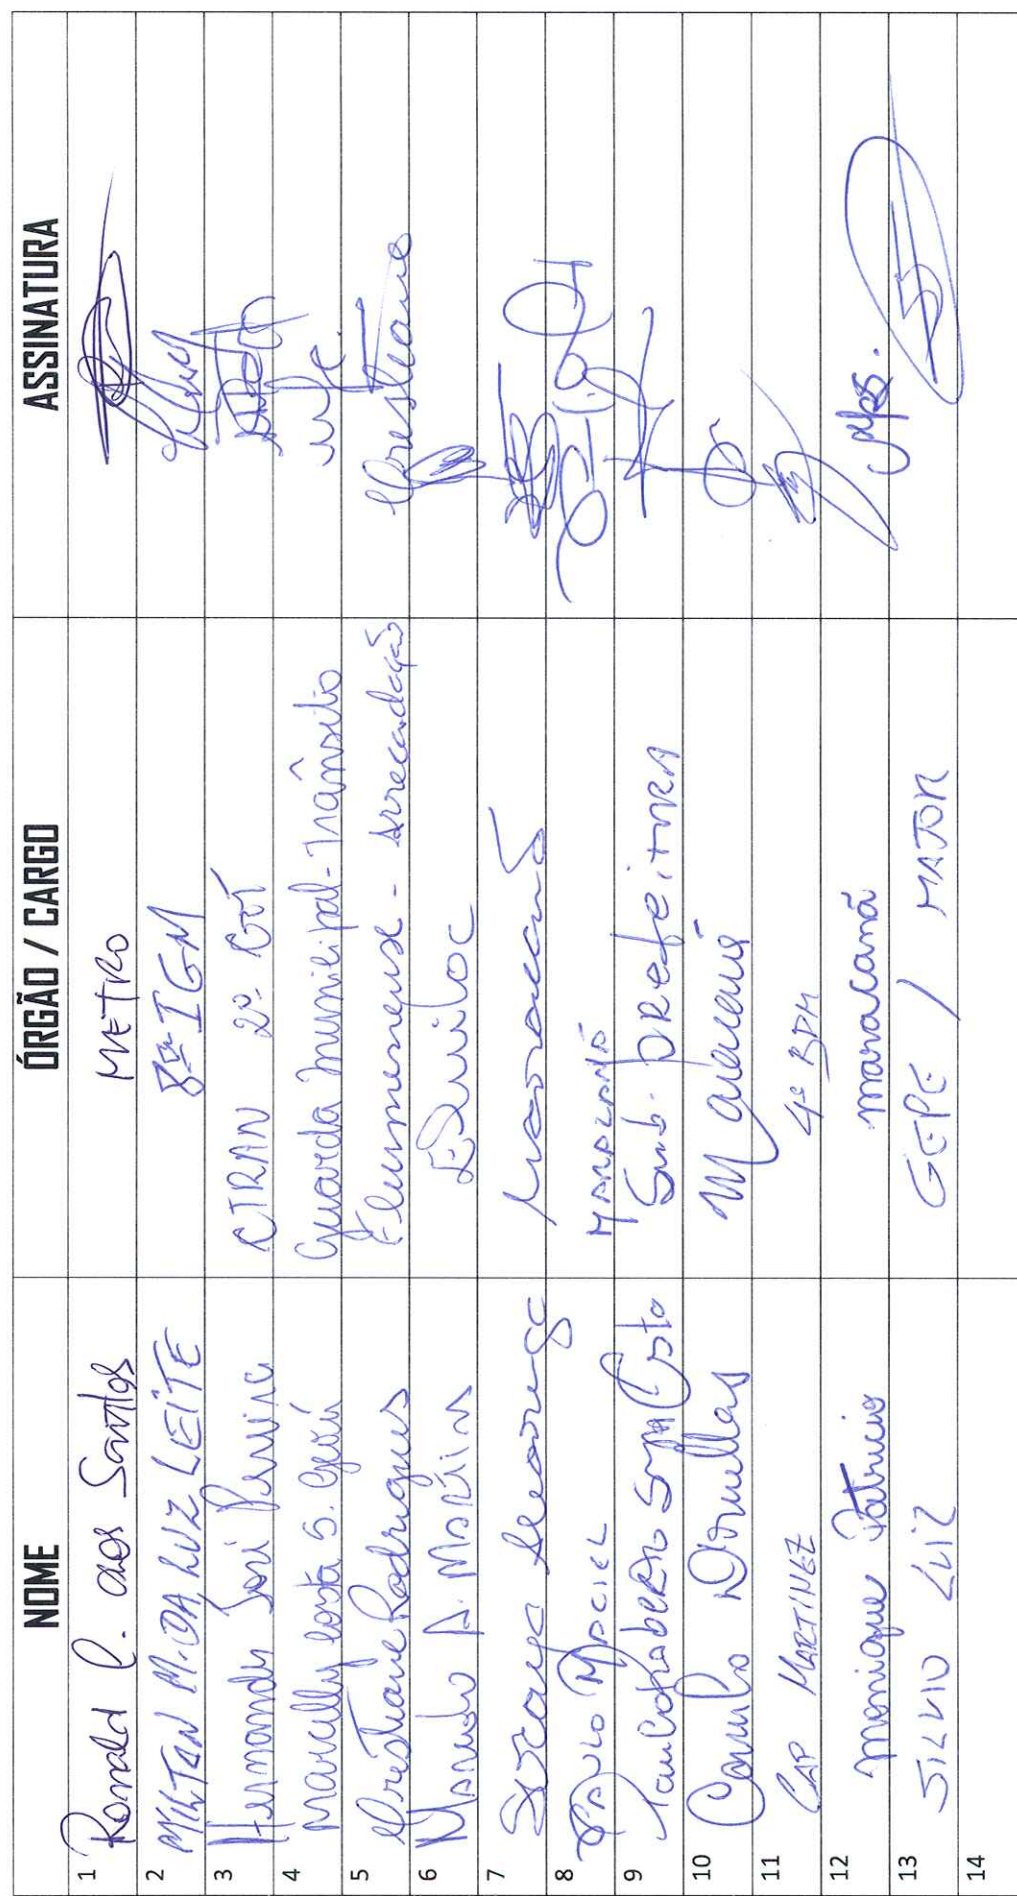 NOME ÓRGÃO / CARGO ASSINATURA
1 Ronald C. dos Santos METRO
2 MILTON M. DA LUZ LEITE 8ª IGM
3 Hernandy José CTRAN 2º
4 Marcelly Costa S. Guarda Municipal - Trânsito
5 Cristiane Rodrigues Fluminense - Arrecadação Cristiane
6 A. Martins
7 Maracanã
8 PAULO MACIEL MARACANÃ
9 Paulo Roberto Costa Sub. PREfeiturA
10 Camila Dornellas Maracanã
11 CAP MARTINEZ 4º BPM
12 Monique Patricio maracanã
13 SILVIO LUIZ GEPE / MAJOR
14